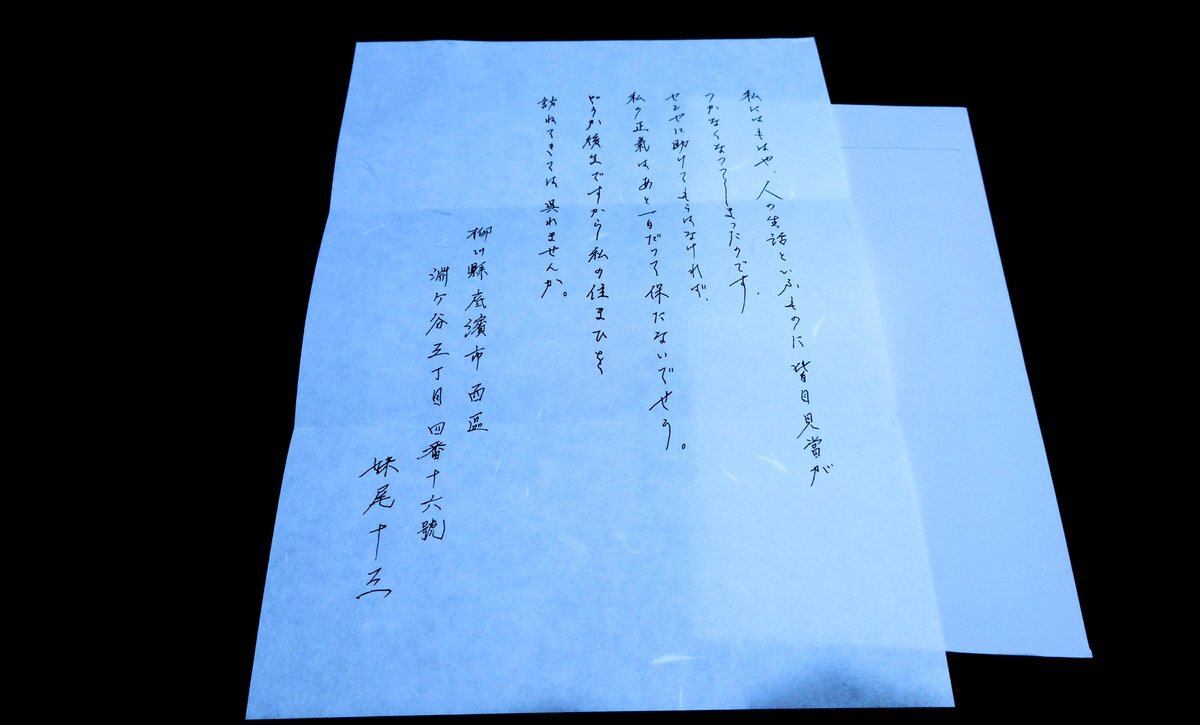 私にはもはや、人の生活といふものに皆目見當が
つかなくなつてしまつたのです。
センセに助けてもらはなければ、
私の正氣はあと一日だつて保たないでせう。
どうか後生ですから私の住まひを
訪ねてきては呉れませんか。
柳川縣底濱市西區
淵ケ谷三丁目四番十六號
妹尾十三